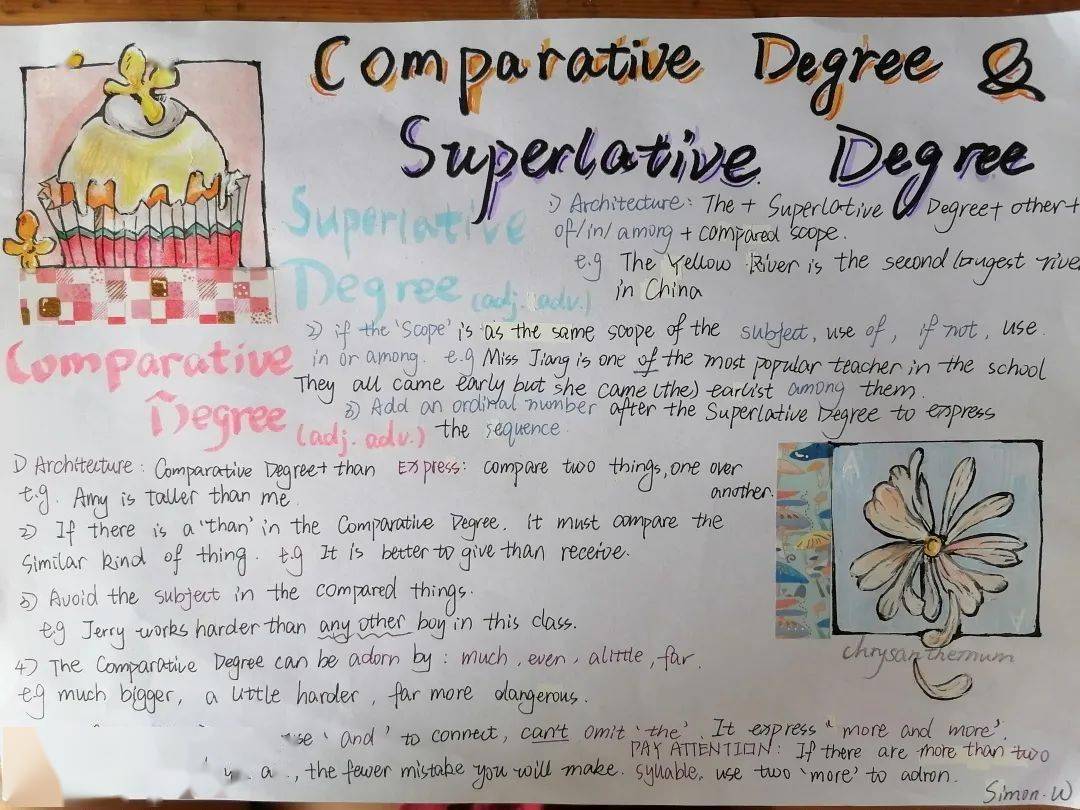 Comparative Degree &
Superlative Degree
Superlative
Degree (adj. adv.)
1) Architecture: The + Superlative Degree + other +
of/in/among + compared scope.
e.g The Yellow River is the second longest river
in China
2) if the 'Scope' is as the same scope of the subject, use of, if not, use
in or among. e.g Miss Jiang is one of the most popular teacher in the school
They all came early but she came (the) earlist among them.
3) Add an ordinal number after the Superlative Degree to express
the sequence
Comparative
Degree (adj. adv.)
1) Architecture: Comparative Degree + than Express: compare two things, one over
another.
e.g. Amy is taller than me.
2) If there is a 'than' in the Comparative Degree, it must compare the
similar kind of thing. e.g It is better to give than receive.
3) Avoid the subject in the compared things.
e.g Jerry works harder than any other boy in this class.
4) The Comparative Degree can be adorn by: much, even, alittle, far.
e.g much bigger, a little harder, far more dangerous.
'and' to connect, can't omit 'the'. It express 'more and more'.
, the fewer mistake you will make.
PAY ATTENTION: If there are more than two
syllable, use two 'more' to adron.
chrysanthemum
Simon.W